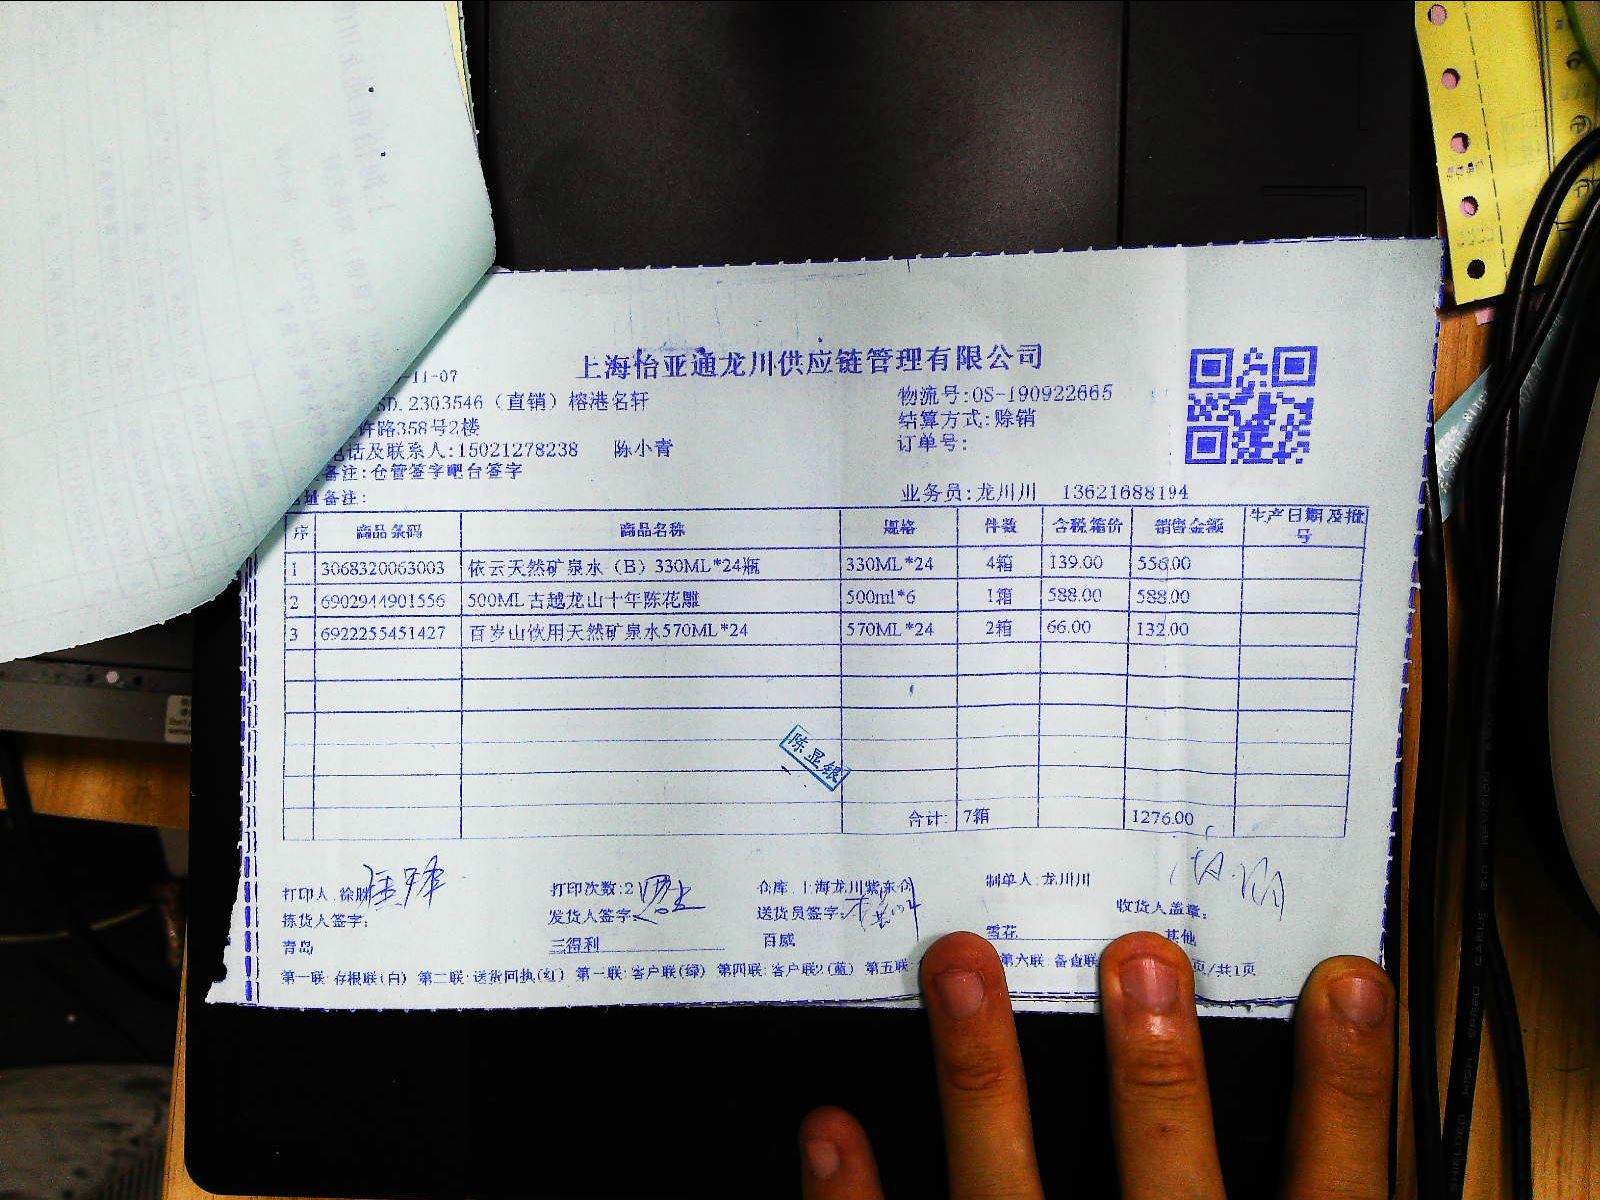 上海怡亚通龙川供应链管理有限公司
-11-07
SD.2303546（直销）榕港名轩
物流号:OS-190922665
许路358号2楼
结算方式:赊销
电话及联系人:15021278238 陈小青
订单号:
备注:仓管签字吧台签字
地址备注:
业务员:龙川川 13621688194
序 商品条码 商品名称 规格 件数 含税箱价 销售金额 生产日期及批号
1 3068320063003 依云天然矿泉水（B）330ML*24瓶 330ML*24 4箱 139.00 556.00
2 6902944901556 500ML古越龙山十年陈花雕 500ml*6 1箱 588.00 588.00
3 6922255451427 百岁山饮用天然矿泉水570ML*24 570ML*24 2箱 66.00 132.00
陈显银
合计: 7箱 1276.00
打印人:徐 打印次数:2 仓库:上海龙川紫东仓 制单人:龙川川
拣货人签字: 发货人签字: 送货员签字: 收货人盖章:
青岛 三得利 百威 雪花 其他
第一联:存根联(白) 第二联:送货回执(红) 第一联:客户联(绿) 第四联:客户联2(蓝) 第五联: 第六联:备查联 页/共1页